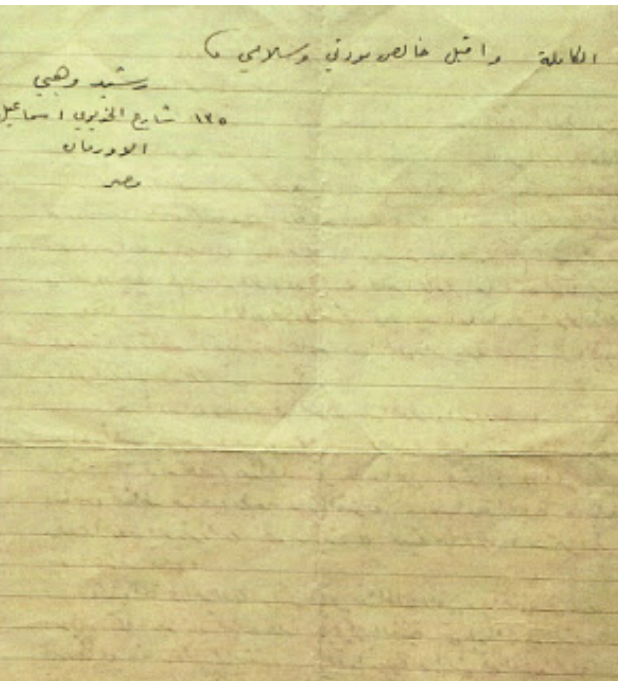 الكاملة واقبل خالص مودتي وسلامي
رشيد وهبي
١٢٥ شارع الخديوي اسماعيل
الاورمان
مصر